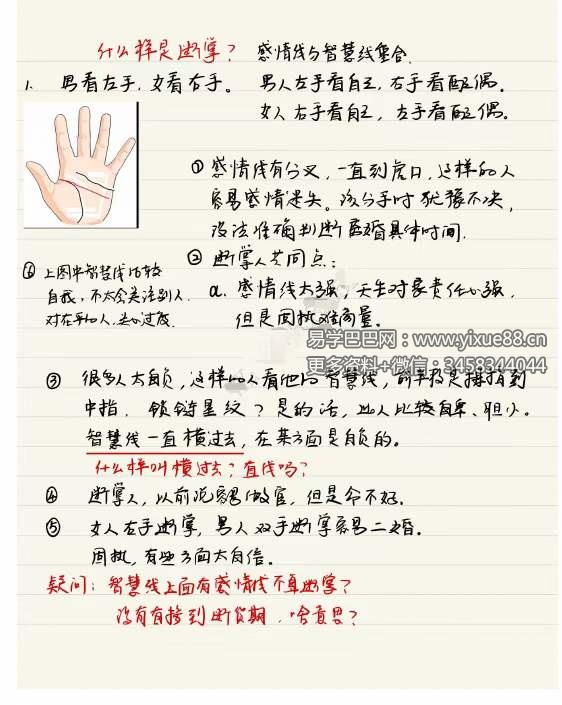 什么样是断掌？ 感情线与智慧线集合.
1. 男看左手，女看右手。 男人左手看自己，右手看配偶。
女人右手看自己，左手看配偶。
① 感情线有分叉，一直到虎口，这样的人
容易感情迷失。该分手时犹豫不决，
没法准确判断离婚具体时间.
② 断掌人共同点：
a. 感情线太强，天生对家责任心强，
但是固执难商量。
⑥ 上图中智慧线比较
自我，不太会关注别人.
对在乎的人，关心过度.
易学巴巴网：www.yixue88.cn
更多资料+微信：3458344044
③ 很多人太自负，这样的人看他的智慧线，前半段是拇指到
中指，锁链星纹？是的话，此人比较自卑、胆小。
智慧线一直横过去，在某方面是自负的。
什么样叫横过去？直线吗？
④ 断掌人，以前说容易做官，但是命不好.
⑤ 女人左手断掌，男人双手断掌容易二婚。
固执，有些方面太自信。
疑问：智慧线上面有感情线不算断掌？
没有有接到断层期，啥意思？